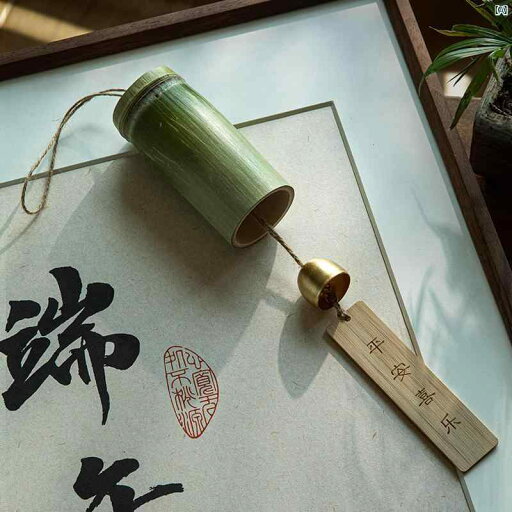 端午
平安喜乐